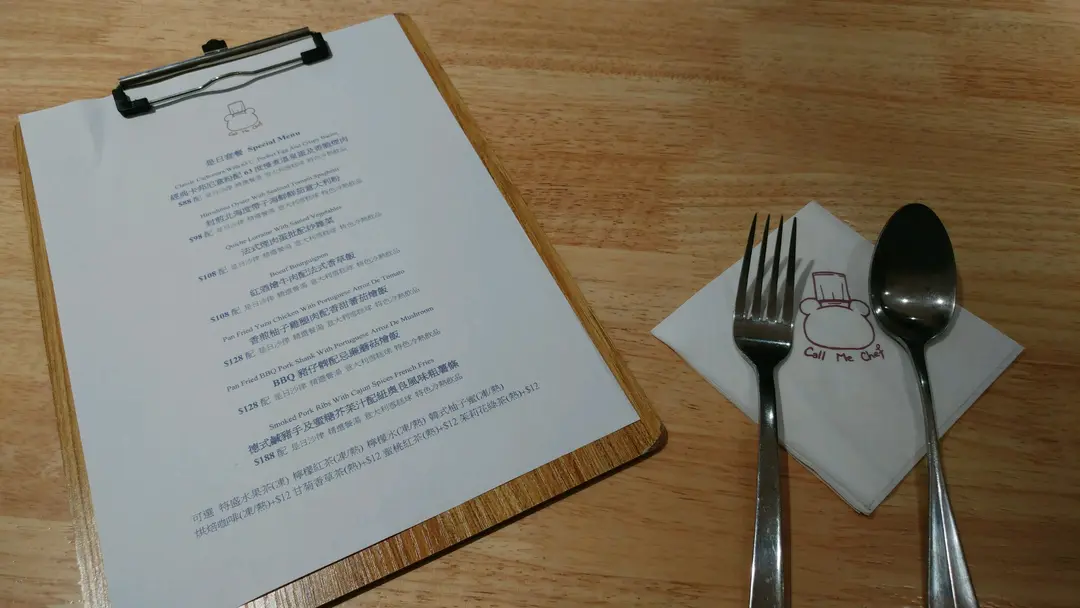 Call Me Chef
是日套餐 Special Menu
Classic Carbonara With 63℃ Egg And Crispy Bacon
經典卡邦尼意粉配63度慢煮溫泉蛋及香脆煙肉
$88 配 是日沙律 精選餐湯 意大利雪糕球 特色冷熱飲品
Hiroshima Oyster With Seafood Tomato Spaghetti
意大利粉
$98 配 是日沙律 精選餐湯 意大利雪糕球 特色冷熱飲品
Quiche Lorraine With Sauteed Vegetables
法式煙肉蛋批配炒雜菜
$108 配 是日沙律 精選餐湯 意大利雪糕球 特色冷熱飲品
Boeuf Bourguignon
紅酒燴牛肉配法式香草飯
$108 配 是日沙律 精選餐湯 意大利雪糕球 特色冷熱飲品
Pan Fried Yuzu Chicken With Portuguese Arroz De Tomato
香煎柚子雞腿肉配香甜蕃茄燴飯
$128 配 是日沙律 精選餐湯 意大利雪糕球 特色冷熱飲品
Pan Fried BBQ Pork Shank With Portuguese Arroz De Mushroom
BBQ 豬仔髀配忌廉蘑菇燴飯
$128 配 是日沙律 精選餐湯 意大利雪糕球 特色冷熱飲品
Smoked Pork Ribs With Cajun Spices French Fries
德式鹹豬手及蜜糖芥茉汁配紐奧良風味粗薯條
$188 配 是日沙律 精選餐湯 意大利雪糕球 特色冷熱飲品
可選 特盛水果茶(凍) 檸檬紅茶(凍/熱) 檸檬水(凍/熱) 韓式柚子蜜(凍/熱)
烘焙咖啡(凍/熱)+$12 甘菊香草茶(熱)+$12 蜜桃紅茶(熱)+$12 茉莉花綠茶(熱)+$12
Call Me Chef